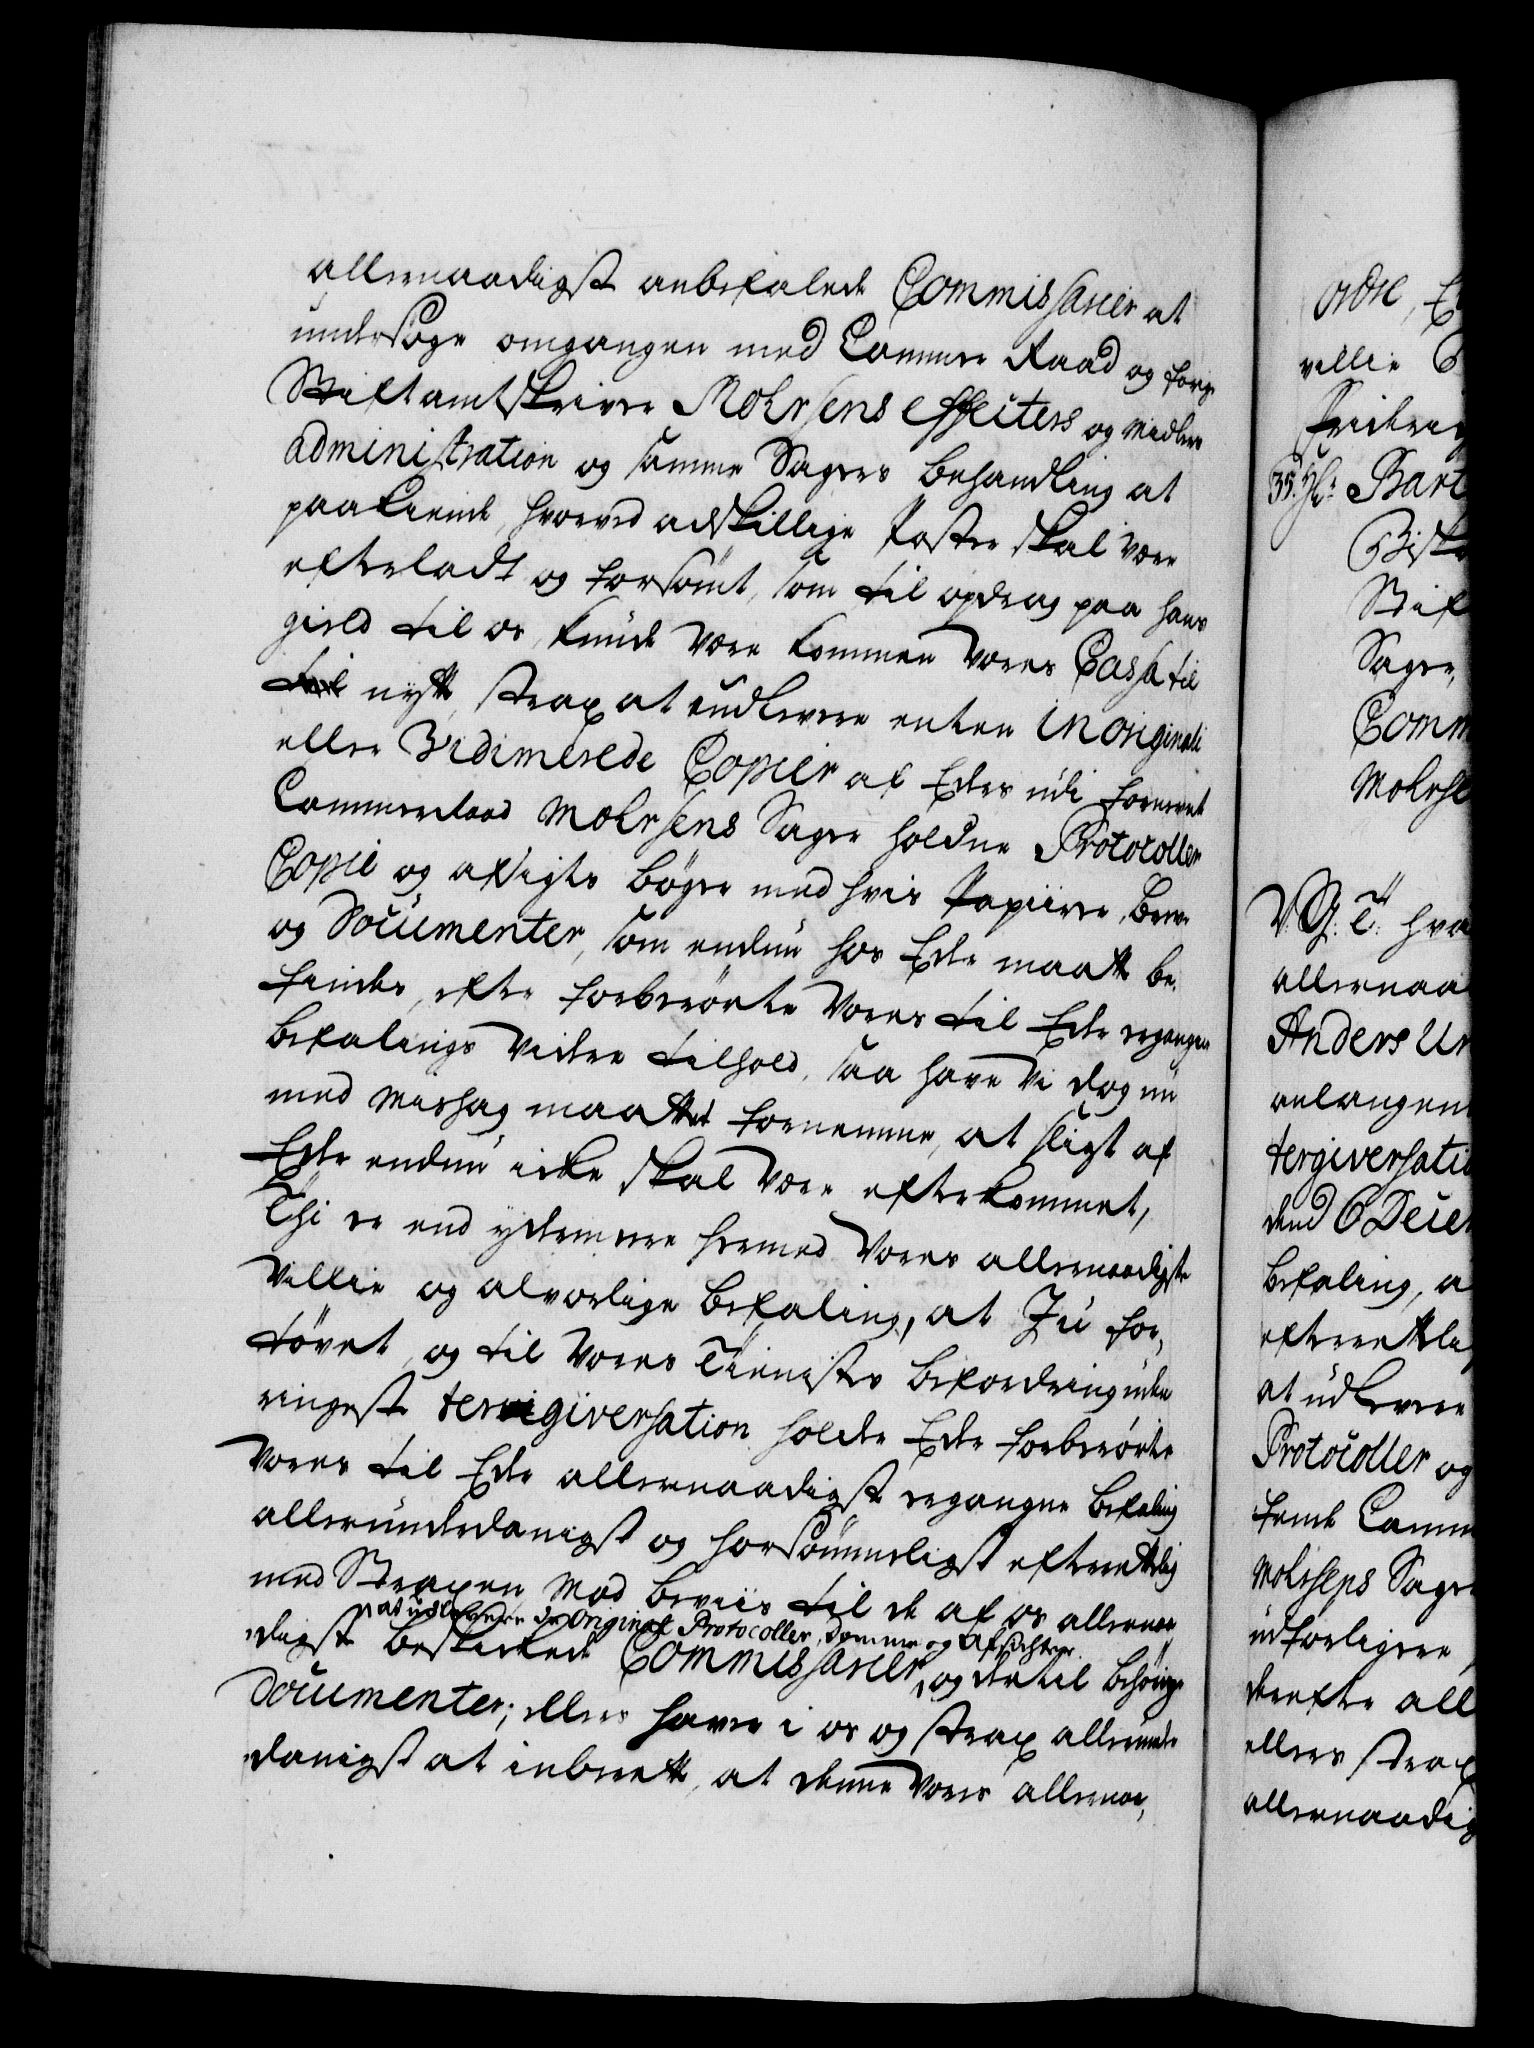 allernaadigst anbefalede Commissarier at
undersøge omgangen med Cammer Raad og forige
Stiftamtskriver Mohrsens Effecters og Midlers
administration og samme Sagers behandling at
paakiende, hvorved adskillige Poster skal være
efterladt og forsømt, som til opdrag paa hans
gield til os kunde være kommen vores Cassa til
nytte, strax at udlevere enten in originali
eller Vidimerede Copier af Eders udi forne
Cammerraad Mohrsens Sager holdne Protocoller
Copie og afsigts bøger med hvis Papiirer, breve
og Documenter, som endnu hos Eder maatte be-
findes, efter forberørte Vores til Eder ergangen
befalings videre tilhold, saa have Vi dog nu
med mishag maattet fornemme, at sligt af
Eder endnu icke skal være efterkommet,
Thi er end ydermere hermed Vores allernaadigste
Villie og alvorlige befaling, at I u-for-
tøvet, og til Vores Tienistes befordring uden
ringeste tergiversation holde Eder forberørte
Vores til Eder allernaadigst ergangne befaling
allerunderdanigst og hørsommeligst efterrettelig
med Straxen mod beviis til de af os allernaa-
digst beskickede Commissarier at udlevere de Original Protocoller, Domme og Afsichter, og dertil behørige
Documenter; ellers haver i os og strax allerunder-
danigst at indberette, at denne Vores allernaa-
ordre, E
villie
Frideric
35. Bart
Bisk
Stif
Sager,
Comm
Mohrse
V. G. T. hva
allernaa
Anders Ur
anlangen
tergiversatio
dend 6 Decem
befaling, a
efterrettelig
at udlevere
Protocoller og
Camm
Mohrsens Sager
udførligere
derefter all
ellers strax
allernaadig